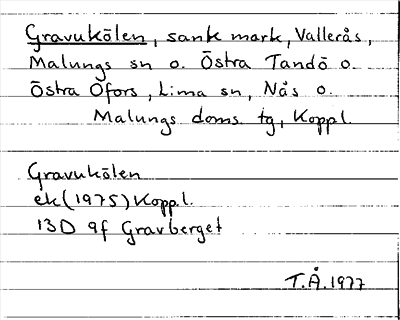 Gravukölen, sank mark, Vallerås,
Malungs sn o. Östra Tandö o.
Östra Öfors, Lima sn, Nås o.
Malungs doms. tg, Koppl.
Gravukölen
ek (1975) Koppl.
13D 9f Gravberget
T.Å. 1977